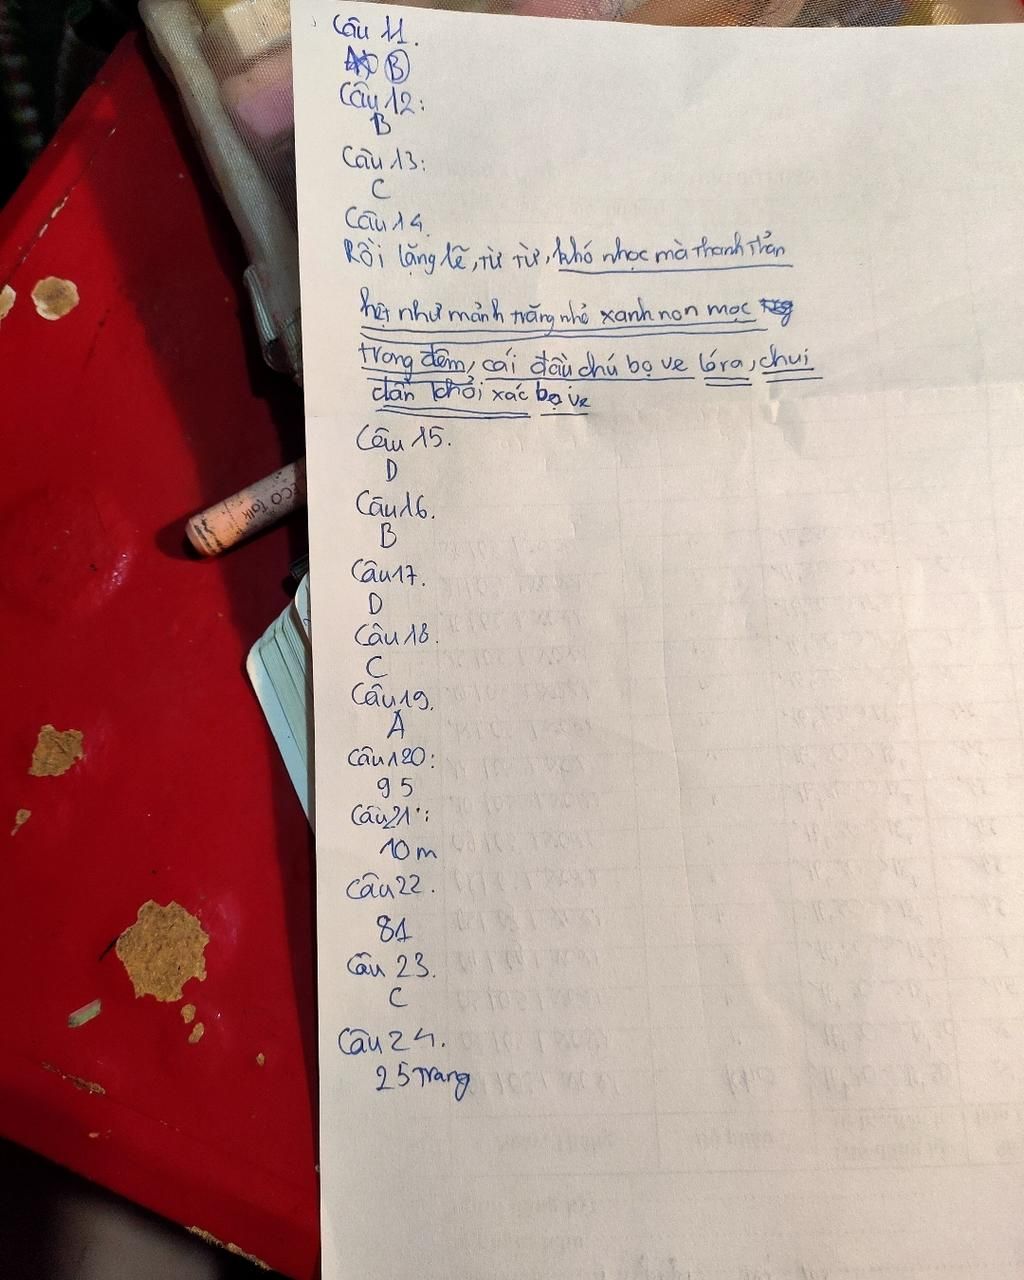 Câu 11.
B
Câu 12:
B
Câu 13:
C
Câu 14.
Rồi lặng lẽ, từ từ, khó nhọc mà thanh thản
hệt như mảnh trăng nhỏ xanh non mọc
trong đêm, cái đầu chú bọ ve ló ra, chui
dần khỏi xác bọ ve
Câu 15.
D
Câu 16.
B
Câu 17.
D
Câu 18.
C
Câu 19.
A
Câu 120:
95
Câu 21:
10m
Câu 22.
81
Câu 23.
C
Câu 24.
25 Trang
ECO Talk